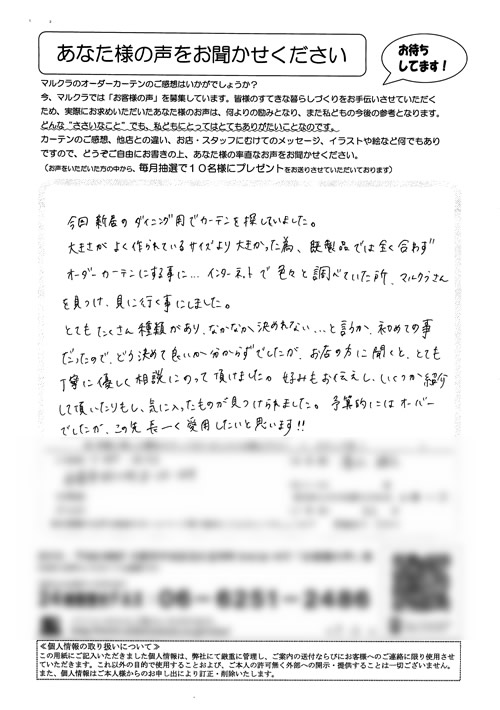 あなた様の声をお聞かせください
お待ち
してます！
マルクラのオーダーカーテンのご感想はいかがでしょうか？
今、マルクラでは「お客様の声」を募集しています。皆様のすてきな暮らしづくりをお手伝いさせていただく
ため、実際にお求めいただいたあなた様のお声は、何よりの励みとなり、また私どもの今後の参考となります。
どんな“ささいなこと”でも、私どもにとってはとてもありがたいことなのです。
カーテンのご感想、他店との違い、お店・スタッフにむけてのメッセージ、イラストや絵など何でもあり
ですので、どうぞご自由にお書きの上、あなた様の率直なお声をお聞かせください。
（お声をいただいた方の中から、毎月抽選で１０名様にプレゼントをお送りさせていただいております）
今回 新居の ダイニング用でカーテンを探していました。
大きさが よく作られているサイズより 大きかった為、既製品では全く合わず
オーダーカーテンにする事に… インターネットで 色々と調べていた所、マルクラさん
を見つけ、見に行く事にしました。
とても たくさん 種類があり、なかなか 決めれない…と言うか、初めての事
だったので、どう決めて良いか分からずでしたが、お店の方に聞くと、とても
丁寧に優しく相談にのって頂けました。好みもお伝えし、いくつか紹介
して頂いたりもし、気に入ったものが見つけられました。予算的にはオーバー
でしたが、この先 長ーく愛用したいと思います!!
06-6251-2486
≪個人情報の取り扱いについて≫
この用紙にご記入いただきました個人情報は、弊社にて厳重に管理し、ご案内の送付ならびにお客様へのご連絡に限り使用させ
ていただきます。これ以外の目的で使用することおよび、ご本人の許可無く外部への開示・提供することは一切ございません。
また、個人情報はご本人様からのお申し出により訂正・削除いたします。